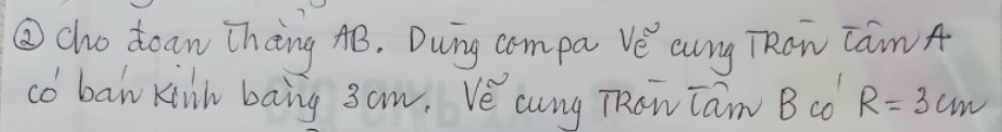 ② Cho đoạn thẳng AB. Dùng compa vẽ cung TRòn tâm A
có bán kính bằng 3 cm. Vẽ cung TRòn tâm B có R = 3 cm